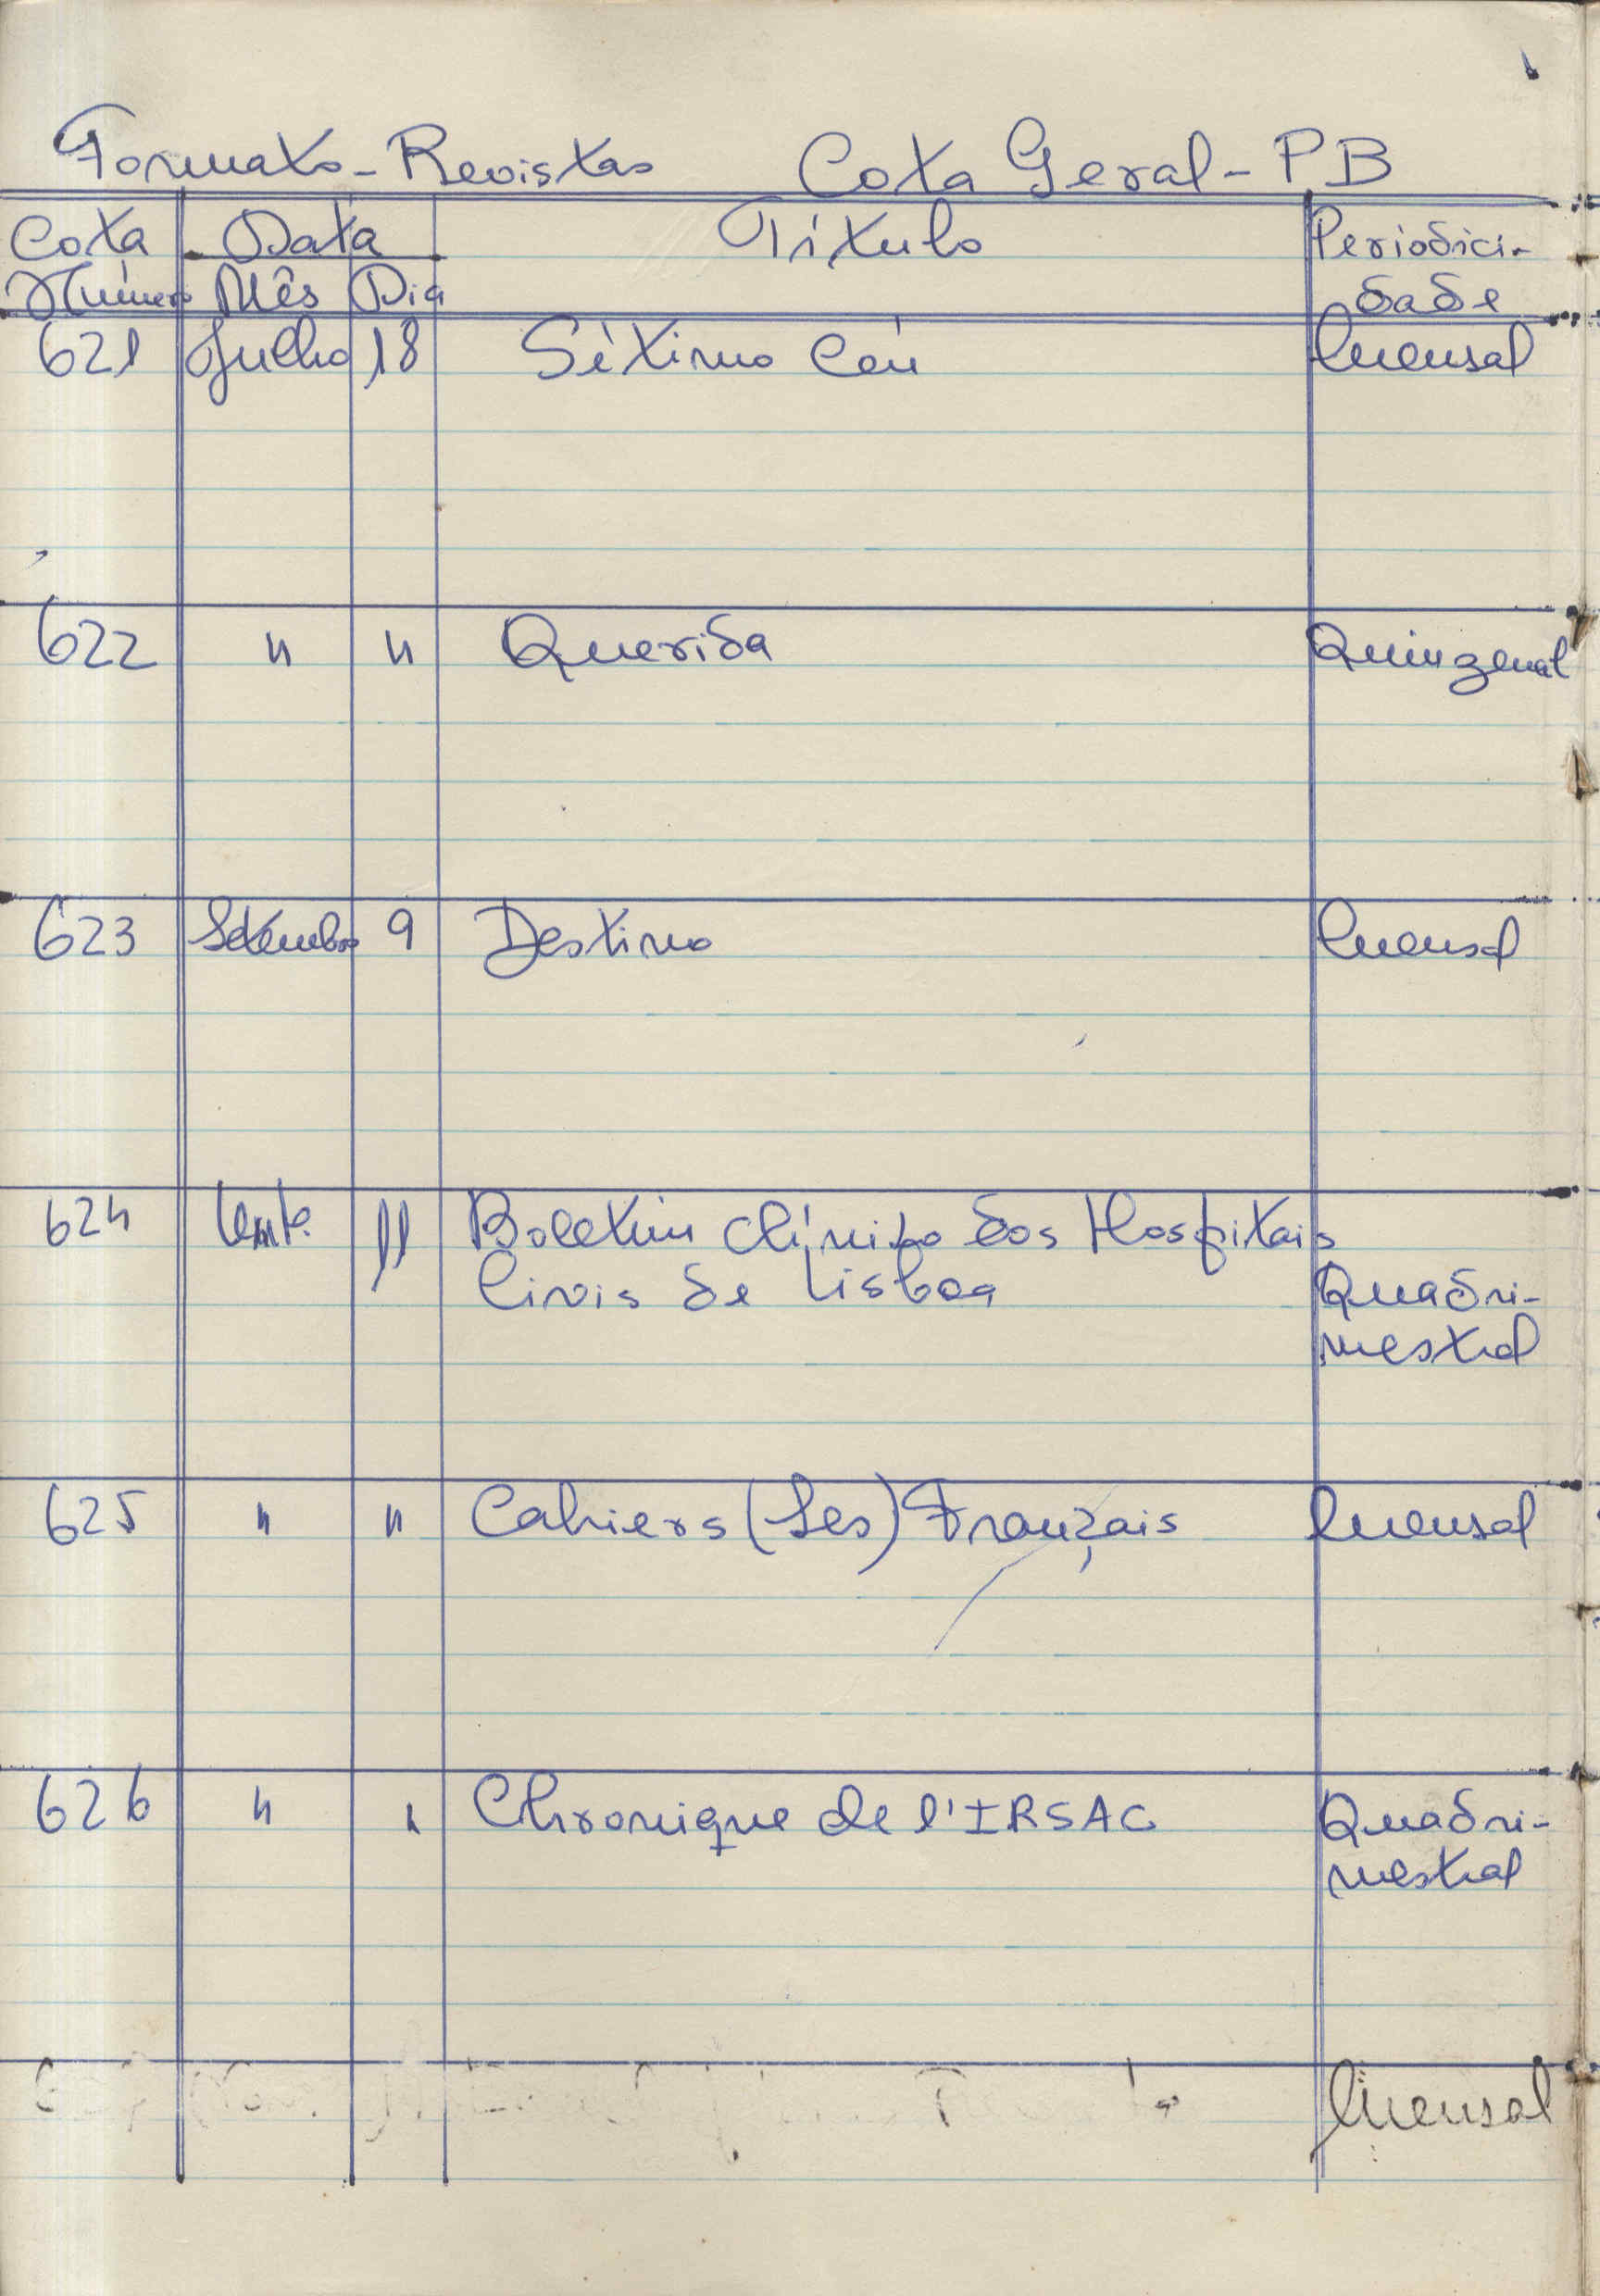 Formato - Revistas Cota Geral - PB
Cota Data Título Periodici-
Número Mês Dia dade
621 Julho 18 Sétimo Céu Mensal
622 " " Querida Quinzenal
623 Setembro 9 Destino Mensal
624 11 Boletim Clínico dos Hospitais
Civis de Lisboa Quadri-
mestral
625 " " Cahiers (Les) Français Mensal
626 " " Chronique de l'IRSAC Quadri-
mestral
Mensal